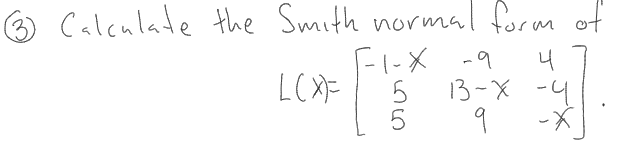 ③ Calculate the Smith normal form of
L(X)= [-1-X -9 4
5 13-X -4
5 9 -X].